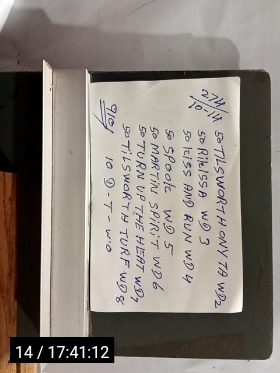 50 TILSWORTH ONY TA WD2
50 RILISSA WD 3
50 KISS AND RUN WD 4
50 SPOOK WD 5
50 MARTIN SPIRIT WD 6
50 TURN UP THE HEAT WD7
50 TILSWORTH TURF WD 8
10 D - T - W/O
14 / 17:41:12